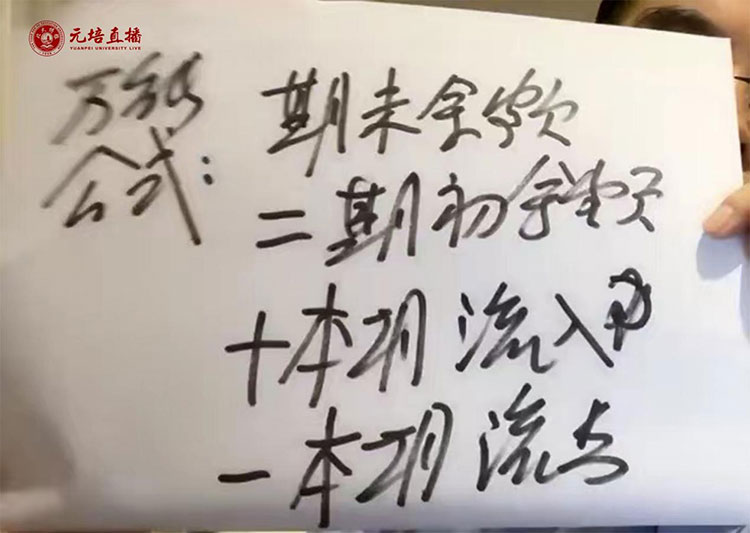 元培直播
YUANPEI UNIVERSITY LIVE
万能
公式:
期末余额
=期初余额
+本期流入
-本期流出